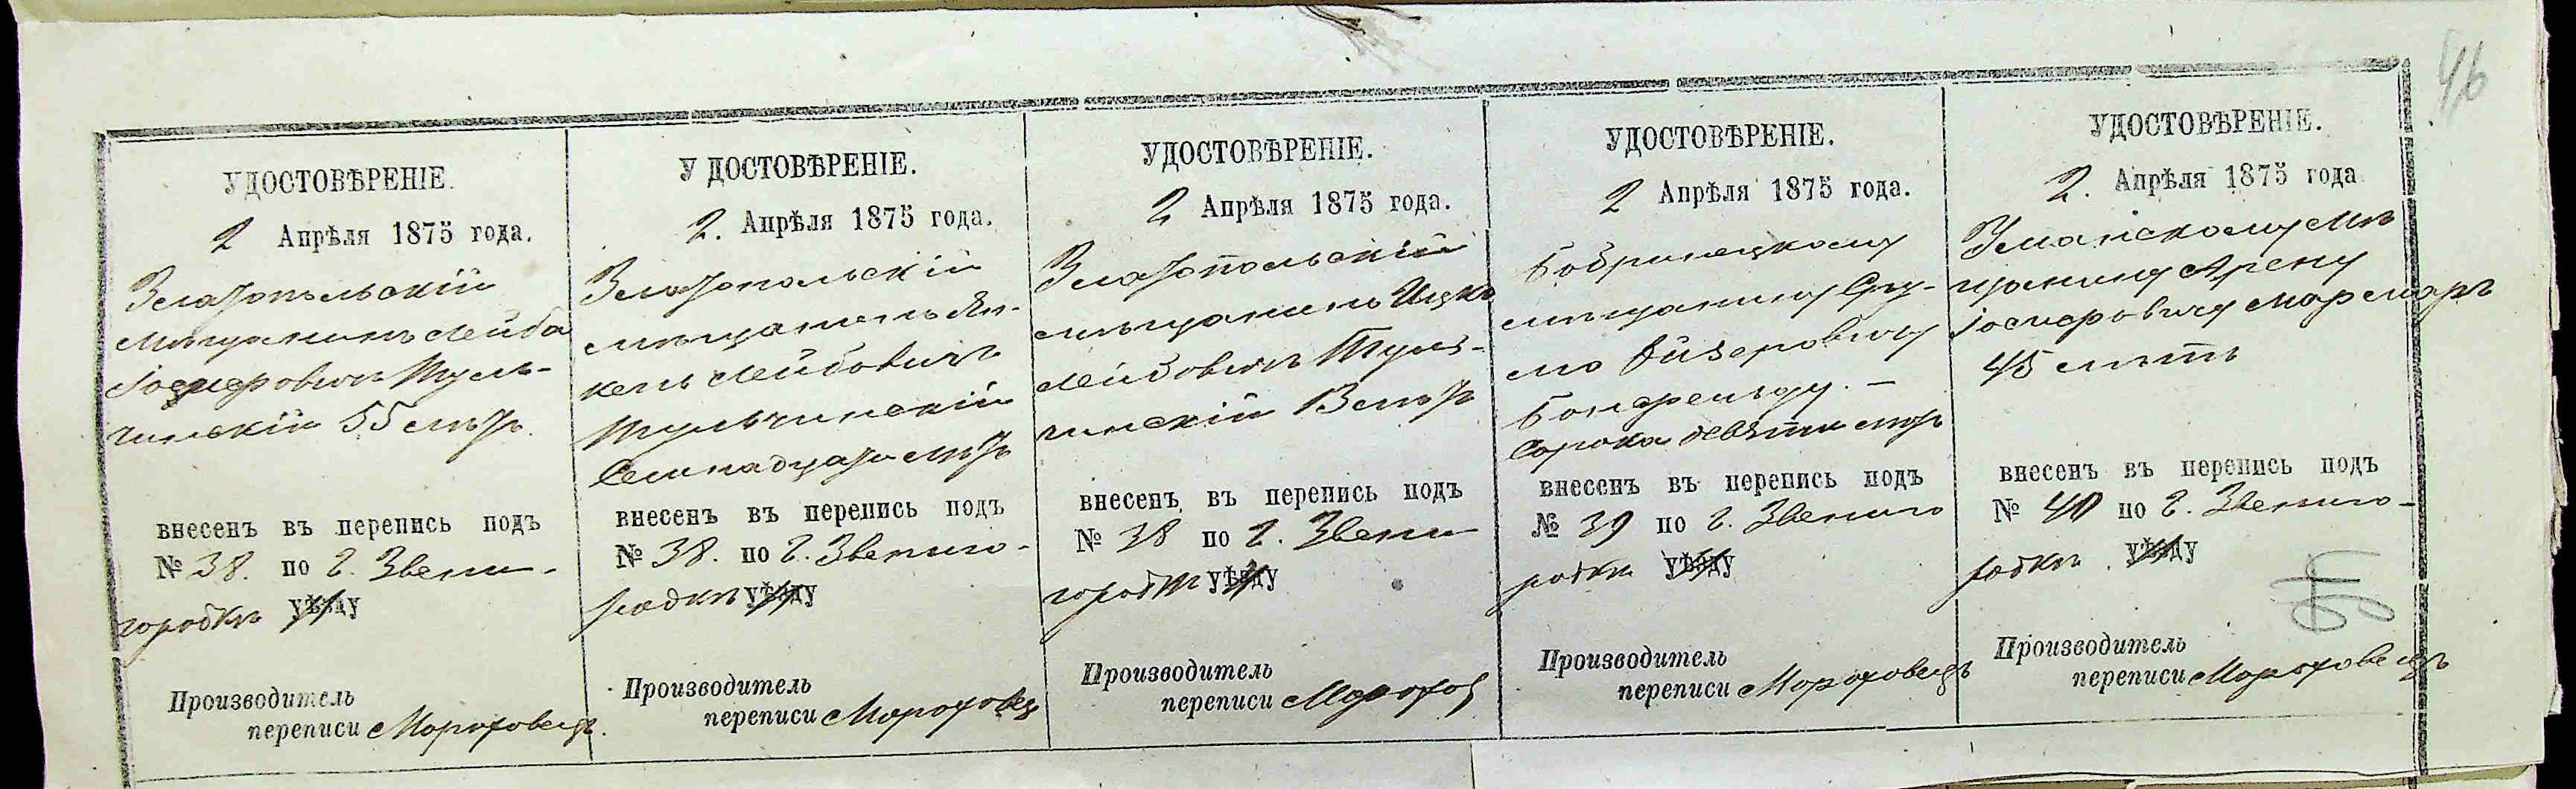 46
УДОСТОВѢРЕНІЕ.
2 Апрѣля 1875 года.
Златопольскій
мѣщанинъ Лейба
Іосиеровичъ Туль-
чинскій 55 лѣтъ.
внесенъ въ перепись подъ
№ 38. по г. Звени-
городкѣ уѣзду
Производитель
переписи Мороховецъ.
УДОСТОВѢРЕНІЕ.
2. Апрѣля 1875 года.
Златопольскій
мѣщанинъ Ян-
кель Лейбовичъ
Тульчинскій
Семнадцати лѣтъ
внесенъ въ перепись подъ
№ 38. по г. Звениго-
родкѣ уѣзду
Производитель
переписи Мороховец
УДОСТОВѢРЕНІЕ.
2 Апрѣля 1875 года.
Златопольскій
мѣщанинъ Ицко
Лейбовичъ Туль-
чинскій 13 лѣтъ
внесенъ въ перепись подъ
№ 38 по г. Звени
городкѣ уѣзду
Производитель
переписи Морохов
УДОСТОВѢРЕНІЕ.
2 Апрѣля 1875 года.
Бобринецкому
мѣщанину Сру-
лю Айзеровичу
Бонфельду. —
Сорока девяти лѣтъ
внесенъ въ перепись подъ
№ 39 по г. Звениго
родки уѣзду
Производитель
переписи Мороховецъ
УДОСТОВѢРЕНІЕ.
2. Апрѣля 1875 года
Уманскому мѣ
щанину Арону
Іосиеровичу
45 лѣтъ
внесенъ въ перепись подъ
№ 40 по г. Звениго-
родкѣ. уѣзду
Производитель
переписи Мороховецъ